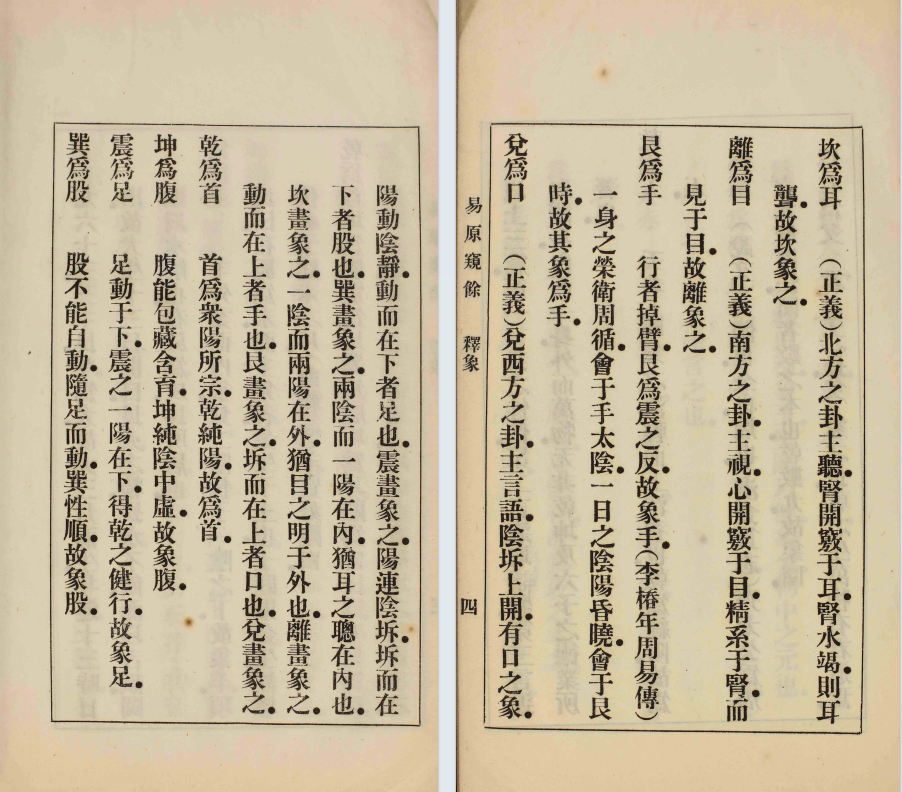 陽動陰靜。動而在下者足也。震畫象之。陽連陰坼。坼而在
下者股也。巽畫象之。兩陰而一陽在內。猶耳之聰在內也。
坎畫象之。一陰而兩陽在外。猶目之明于外也。離畫象之。
動而在上者手也。艮畫象之。坼而在上者口也。兌畫象之。
乾爲首　首爲衆陽所宗。乾純陽。故爲首。
坤爲腹　腹能包藏含育。坤純陰中虛。故象腹。
震爲足　足動于下。震之一陽在下。得乾之健行。故象足。
巽爲股　股不能自動。隨足而動。巽性順。故象股。
坎爲耳　(正義)北方之卦主聽。腎開竅于耳。腎水竭。則耳
聾。故坎象之。
離爲目　(正義)南方之卦。主視。心開竅于目。精系于腎。而
見于目。故離象之。
艮爲手　行者掉臂。艮爲震之反。故象手。(李椿年周易傳)
一身之榮衛周循。會于手太陰。一日之陰陽昏曉。會于艮
時。故其象爲手。
兌爲口　(正義)兌西方之卦。主言語。陰坼上開。有口之象。
易原窺餘　釋象　四